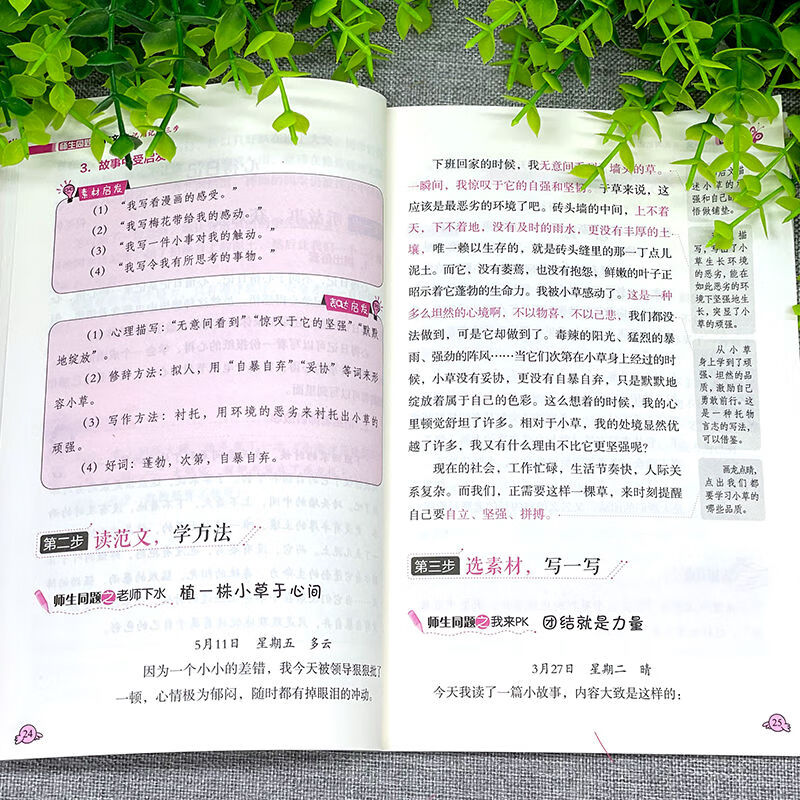 师生同题
3. 故事中受启发
素材启发
(1) “我写看漫画的感受。”
(2) “我写梅花带给我的感动。”
(3) “我写一件小事对我的触动。”
(4) “我写令我有所思考的事物。”
表达启发
(1) 心理描写：“无意间看到”“惊叹于它的坚强”“默默
地绽放”。
(2) 修辞方法：拟人，用“自暴自弃”“妥协”等词来形
容小草。
(3) 写作方法：衬托，用环境的恶劣来衬托出小草的
顽强。
(4) 好词：蓬勃，次第，自暴自弃。
第二步 读范文，学方法
师生同题之老师下水 植一株小草于心间
5月11日 星期五 多云
因为一个小小的差错，我今天被领导狠狠批了
一顿，心情极为郁闷，随时都有掉眼泪的冲动。
24
下班回家的时候，我无意间看到墙头的草。
一瞬间，我惊叹于它的自强和坚韧。于草来说，这
应该是最恶劣的环境了吧。砖头墙的中间，上不着
天，下不着地，没有及时的雨水，更没有丰厚的土
壤，唯一赖以生存的，就是砖头缝里的那一丁点儿
泥土。而它，没有萎蔫，也没有抱怨，鲜嫩的叶子正
昭示着它蓬勃的生命力。我被小草感动了。这是一种
多么坦然的心境啊，不以物喜，不以己悲，我们都没
法做到，可是它却做到了。毒辣的阳光、猛烈的暴
雨、强劲的阵风……当它们次第在小草身上经过的时
候，小草没有妥协，更没有自暴自弃，只是默默地
绽放着属于自己的色彩。这么想着的时候，我的心
里顿觉舒坦了许多。相对于小草，我的处境显然优
越了许多，我又有什么理由不比它更坚强呢？
现在的社会，工作忙碌，生活节奏快，人际关
系复杂。而我们，正需要这样一棵草，来时刻提醒
自己要自立、坚强、拼搏。
述小草的
强和自己
悟做铺垫。
描
写，写出了小
草生长环境
的恶劣，能在
如此恶劣的环
境下坚强地生
长，突显了小
草的顽强。
从小草
身上学到了顽
强、坦然的品
质，激励自己
勇敢前行。这
是一种托物
言志的写法，
可以借鉴。
画龙点睛，
点出我们都
要学习小草的
哪些品质。
第三步 选素材，写一写
师生同题之我来PK 团结就是力量
3月27日 星期二 晴
今天我读了一篇小故事，内容大致是这样的：
25